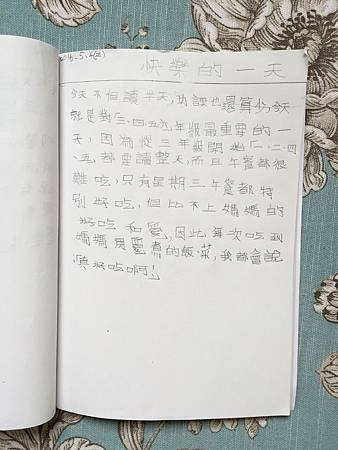 2016.5.4(三)
快樂的一天
今天不但讀半天,功課也還算少,今天
就是對三.四.五.六年級最重要的一
天,因為從三年級開始一.二.四
.五,都要讀整天,而且午餐都很
難吃,只有星期三午餐都特
別好吃,但比不上媽媽的
好吃和愛,因此每次吃到
媽媽用愛煮的飯菜,我都會說
「真好吃啊!」